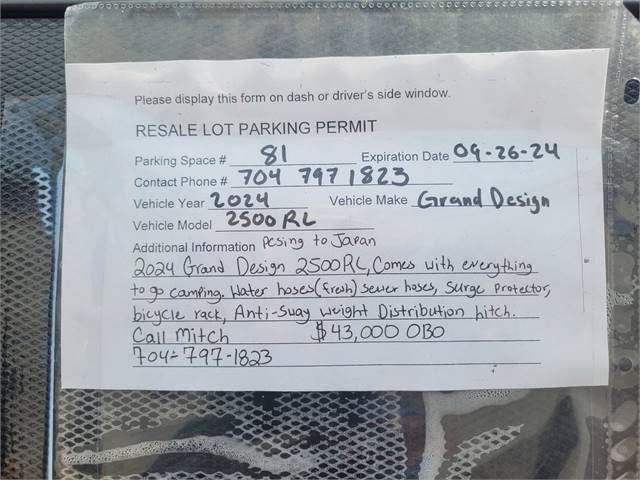 Please display this form on dash or driver's side window.
RESALE LOT PARKING PERMIT
Parking Space # 81 Expiration Date 09-26-24
Contact Phone # 704 797 1823
Vehicle Year 2024 Vehicle Make Grand Design
Vehicle Model 2500 RL
Additional Information pcsing to Japan
2024 Grand Design 2500RL, Comes with everything
to go camping. Water hoses (fresh) sewer hoses, Surge Protector,
bicycle rack, Anti-Sway weight Distribution hitch.
Call Mitch $43,000 OBO
704-797-1823